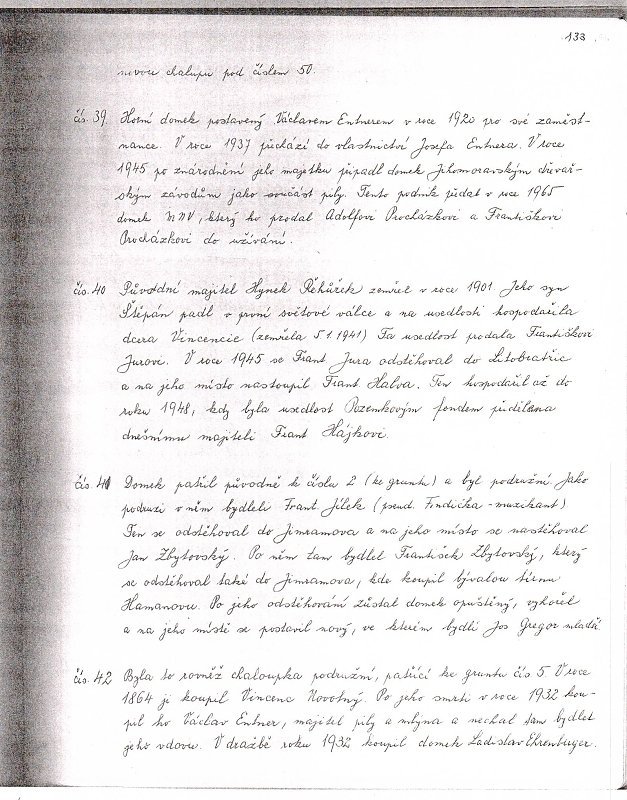 133
novou chalupu pod číslem 50.
čís. 39. Horní domek postavený Václavem Entnerem v roce 1920 pro své zaměst-
nance. V roce 1937 přechází do vlastnictví Josefa Entnera. V roce
1945 po znárodnění jeho majetku připadl domek Jihomoravským dřevař-
ským závodům jako součást pily. Tento podnik předal v roce 1965
domek MNV, který ho prodal Adolfovi Procházkovi a Františkovi
Procházkovi do užívání.
čís. 40 Původní majitel Hynek Řehůřek zemřel v roce 1901. Jeho syn
Štěpán padl v první světové válce a na usedlosti hospodařila
dcera Vincencie (zemřela 5.1.1941) Ta usedlost prodala Františkovi
Jurovi. V roce 1945 se Frant Jura odstěhoval do Litobratřic
a na jeho místo nastoupil Frant Halva. Ten hospodařil až do
roku 1948, kdy byla usedlost Pozemkovým fondem přidělena
dnešnímu majiteli Frant Hájkovi.
čís. 41 Domek patřil původně k číslu 2 (ke gruntu) a byl podružní Jako
podruzi v něm bydleli Frant Jílek (pseud. Findička - muzikant)
Ten se odstěhoval do Jimramova a na jeho místo se nastěhoval
Jan Zbytovský. Po něm tam bydlel František Zbytovský, který
se odstěhoval také do Jimramova, kde koupil bývalou firmu
Hamanovu. Po jeho odstěhování zůstal domek opuštěný, vyhořel
a na jeho místě se postavil nový, ve kterém bydlí Jos Gregor mladší
čís. 42 Byla to rovněž chaloupka podružní, patřící ke gruntu čís 5. V roce
1864 ji koupil Vincenc Novotný. Po jeho smrti v roce 1932 kou-
pil ho Václav Entner, majitel pily a mlýna a nechal tam bydlet
jeho vdovu. V dražbě roku 1932 koupil domek Ladislav Ehrenburger.